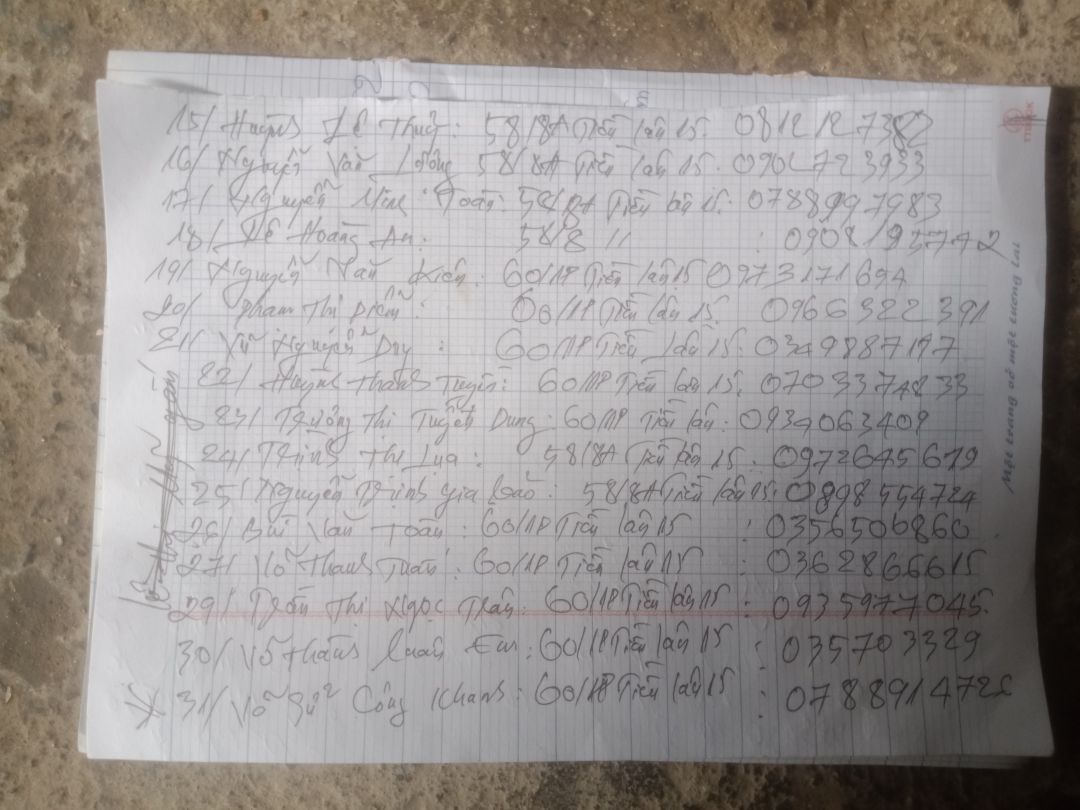 15/ Huỳnh Lê Thuỷ: 58/8A Tiền lân 15. 0812127382
16/ Nguyễn Văn 58/8A Tiền lân 15. 0902723933
17/ Nguyễn Minh Toàn: 58/8A Tiền lân 15: 0788997983
18/ Lê Hoàng An: 58/8 // : 0908195742
19/ Nguyễn Văn Kiên: 60/1P Tiền lân 15 0973171694
20/ Phạm Thị Diễm: 60/1P Tiền lân 15. 0966322391
21/ Vũ Nguyễn Duy: 60/1P Tiền Lân 15. 0349887197
22/ Huỳnh Thanh Tuyền: 60/1P Tiền lân 15. 0703374833
23/ Trương Thị Tuyết Dung: 60/1P Tiền lân: 0934063409
24/ Trịnh Thị Lụa: 58/8A Tiền lân 15: 0972645679
25/ Nguyễn Trịnh Gia Bảo: 58/8A Tiền lân 15: 0898554724
26/ Bùi Văn Toàn: 60/1P Tiền lân 15 : 0356500860
27/ Võ Thanh Tuấn: 60/1P Tiền lân 15 : 0362866615
29/ Trần Thị Ngọc Trân: 60/1P Tiền lân 15 : 0935977045.
30/ Võ Thành Luân Em: 60/1P Tiền lân 15 : 035703329
31/ Võ Sử Công Khanh: 60/1P Tiền lân 15 : 078891472
Một trang vở một tương lai